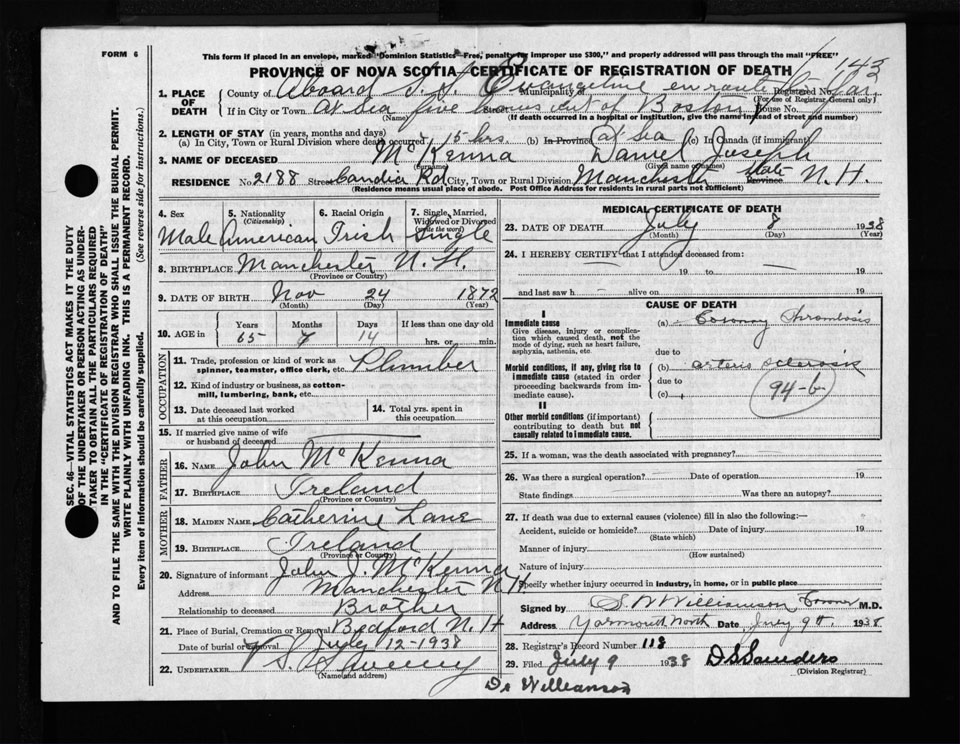 FORM 6
This form if placed in an envelope, marked "Dominion Statistics" Free, penalty for improper use $300," and properly addressed will pass through the mail "FREE"
PROVINCE OF NOVA SCOTIA—CERTIFICATE OF REGISTRATION OF DEATH
143
1. PLACE OF DEATH County of Aboard S.S. Evangeline Municipality of en route to Yar. Registered No.
(For use of Registrar General only)
If in City or Town At sea five hours out of Boston House No.
(Name) (If death occurred in a hospital or institution, give the name instead of street and number)
2. LENGTH OF STAY (in years, months and days)
(a) In City, Town or Rural Division where death occurred 15 hrs. (b) In Province at sea (c) In Canada (if immigrant)
3. NAME OF DECEASED McKenna Daniel Joseph
(Surname) (Given name or names)
RESIDENCE No. 2188 Street Candia Rd City, Town or Rural Division Manchester State Province N.H.
(Residence means usual place of abode. Post Office Address for residents in rural parts not sufficient)
4. Sex Male
5. Nationality (Citizenship) American
6. Racial Origin Irish
7. Single, Married, Widowed or Divorced (write the word) Single
8. BIRTHPLACE Manchester N.H.
(Province or Country)
9. DATE OF BIRTH Nov 24 1872
(Month) (Day) (Year)
10. AGE in Years Months Days If less than one day old
65 7 14 hrs. or min.
OCCUPATION
11. Trade, profession or kind of work as spinner, teamster, office clerk, etc. Plumber
12. Kind of industry or business, as cotton-mill, lumbering, bank, etc.
13. Date deceased last worked at this occupation
14. Total yrs. spent in this occupation
15. If married give name of wife or husband of deceased
FATHER
16. NAME John McKenna
17. BIRTHPLACE Ireland
(Province or Country)
MOTHER
18. MAIDEN NAME Catherine Lane
19. BIRTHPLACE Ireland
(Province or Country)
20. Signature of informant John J. McKenna
Address Manchester N H
Relationship to deceased Brother
21. Place of Burial, Cremation or Removal Bedford N.H
Date of burial or removal July 12-1938
22. UNDERTAKER
(Name and address)
MEDICAL CERTIFICATE OF DEATH
23. DATE OF DEATH July 8 1938
(Month) (Day) (Year)
24. I HEREBY CERTIFY that I attended deceased from:
19 to 19
and last saw h alive on 19
CAUSE OF DEATH
I
Immediate cause
Give disease, injury or complication which caused death, not the mode of dying, such as heart failure, asphyxia, asthenia, etc.
(a) Coronary Thrombosis
due to
Morbid conditions, if any, giving rise to immediate cause (stated in order proceeding backwards from immediate cause).
(b) arterio sclerosis
due to
(c)
94-b
II
Other morbid conditions (if important) contributing to death but not causally related to immediate cause.
25. If a woman, was the death associated with pregnancy?
26. Was there a surgical operation? Date of operation 19
State findings Was there an autopsy?
27. If death was due to external causes (violence) fill in also the following:—
Accident, suicide or homicide? Date of injury 19
(State which)
Manner of injury
(How sustained)
Nature of injury
Specify whether injury occurred in industry, in home, or in public place
Signed by S. W Williamson, Coroner M.D.
Address Yarmouth North Date July 9th 1938
28. Registrar's Record Number 118
29. Filed July 9 1938 D S Saunders
(Division Registrar)
Dr Williamson
SEC. 46—VITAL STATISTICS ACT MAKES IT THE DUTY
OF THE UNDERTAKER OR PERSON ACTING AS UNDER-
TAKER TO OBTAIN ALL THE PARTICULARS REQUIRED
IN THE "CERTIFICATE OF REGISTRATION OF DEATH"
AND TO FILE THE SAME WITH THE DIVISION REGISTRAR WHO SHALL ISSUE THE BURIAL PERMIT.
WRITE PLAINLY WITH UNFADING INK. THIS IS A PERMANENT RECORD.
Every item of information should be carefully supplied. (See reverse side for instructions.)